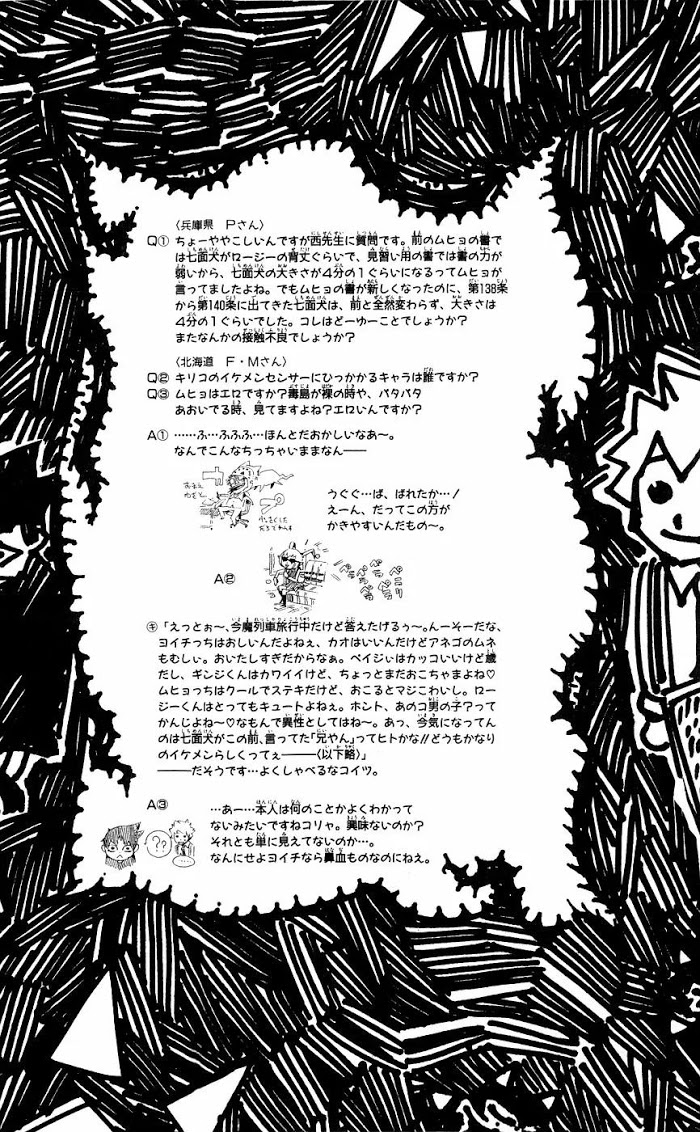 〈兵庫県　Pさん〉
Q① ちょーややこしいんですが西先生に質問です。前のムヒョの書で
は七面犬がロージーの背丈ぐらいで、見習い用の書では書の力が
弱いから、七面犬の大きさが4分の1ぐらいになるってムヒョが
言ってましたよね。でもムヒョの書が新しくなったのに、第138条
から第140条に出てきた七面犬は、前と全然変わらず、大きさは
4分の1ぐらいでした。コレはどーゆーことでしょうか?
またなんかの接触不良でしょうか?
〈北海道　F・Mさん〉
Q② キリコのイケメンセンサーにひっかかるキャラは誰ですか?
Q③ ムヒョはエロですか?毒島が裸の時や、パタパタ
あおいでる時、見てますよね?エロいんですか?
A① ……ふ…ふふふ…ほんとだおかしいなあ〜。
なんでこんなちっちゃいままなん——
うぐぐ…ば、ばれたか…!
えーん、だってこの方が
かきやすいんだもの〜。
A②
ペラペラ
キ 「えっとぉ〜、今魔列車旅行中だけど答えたげるぅ〜。んーそーだな、
ヨイチっちはおしいんだよねぇ、カオはいいんだけどアネゴのムネ
もむしぃ。おいたしすぎだからなぁ。ペイジぃはカッコいいけど歳
だし、ギンジくんはカワイイけど、ちょっとまだおこちゃまよね♡
ムヒョっちはクールでステキだけど、おこるとマジこわいし。ロー
ジーくんはとってもキュートよねぇ。ホント、あのコ男の子?って
かんじよね〜♡なもんで異性としてはね〜。あっ、今気になってん
のは七面犬がこの前、言ってた「兄やん」ってヒトかな!!どうもかなり
のイケメンらしくってぇ———〈以下略〉」
———だそうです…よくしゃべるなコイツ。
A③ …あー…本人は何のことかよくわかって
ないみたいですねコリャ。興味ないのか?
それとも単に見えてないのか…。
なんにせよヨイチなら鼻血ものなのにねえ。
??